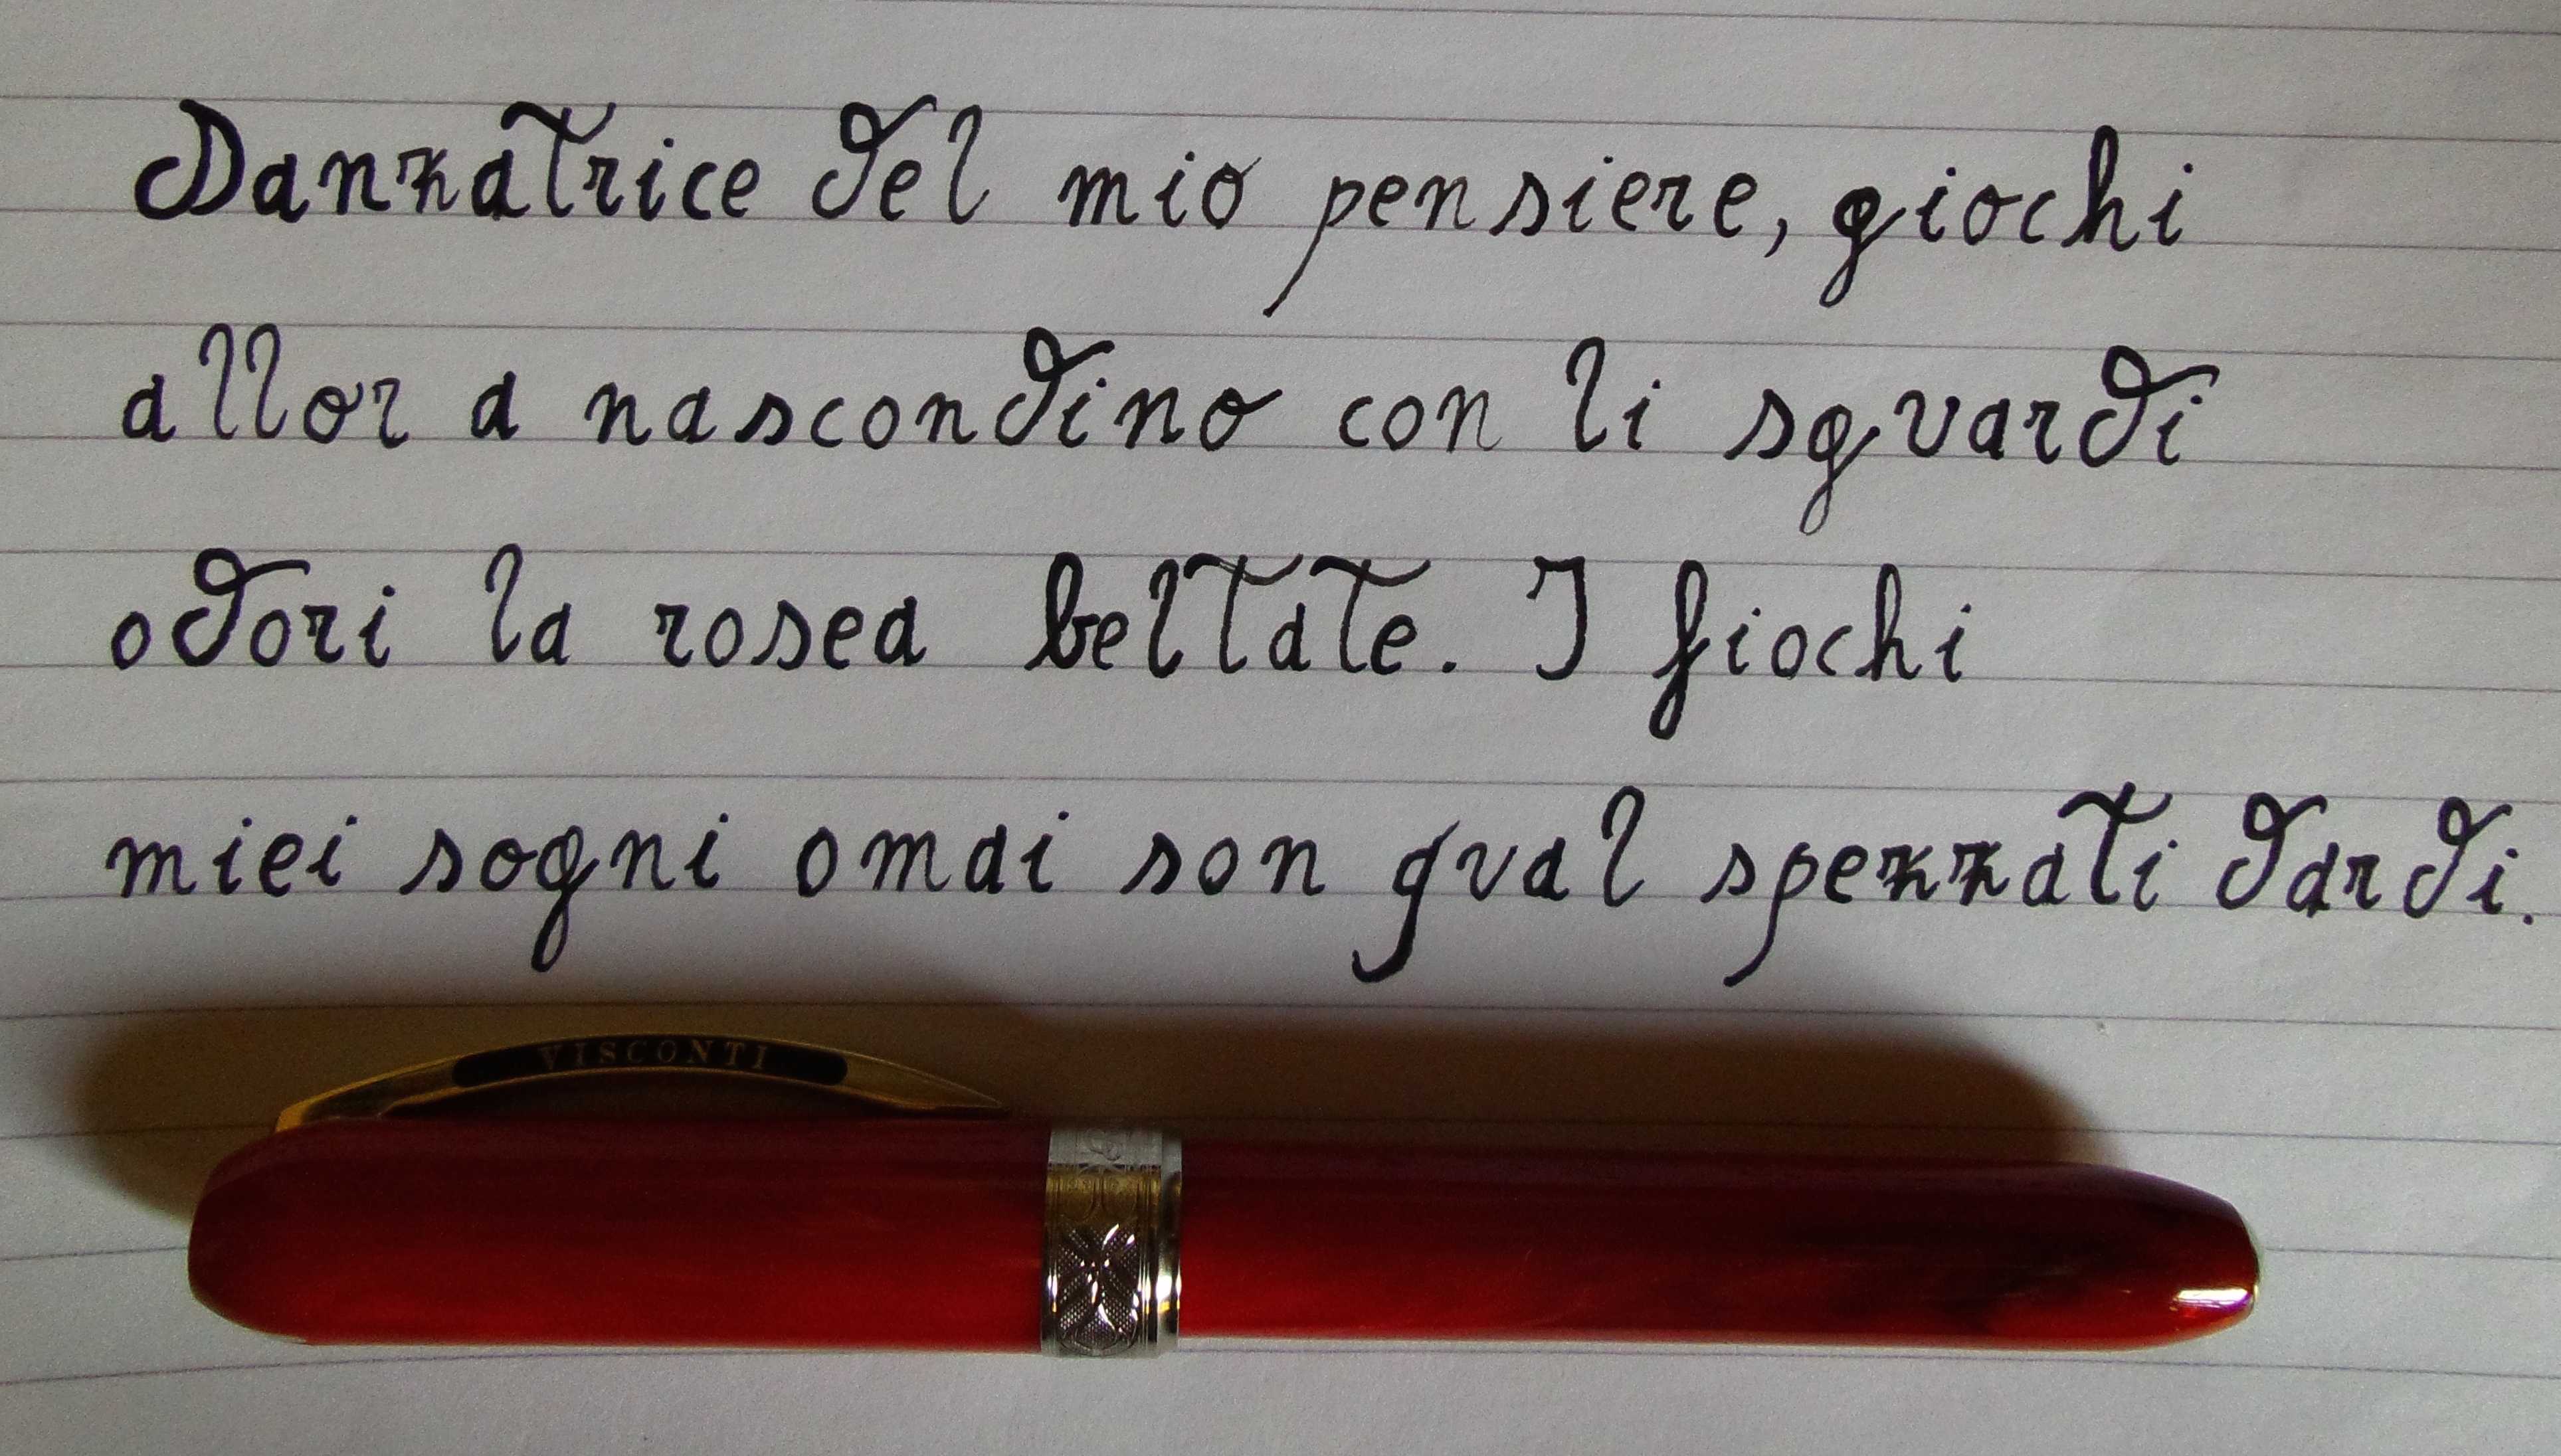 Danzatrice del mio pensiere, giochi
allor a nascondino con li sgvardi
odori la rosea beltate. I fiochi
miei sogni omai son qval spezzati dardi.
VISCONTI